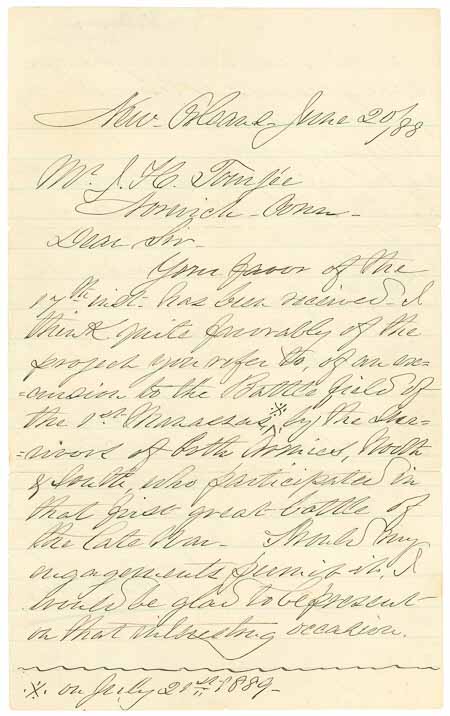 New Orleans, June 20/88
Mr. J. H.
Norwich - Conn -
Dear Sir -
Your favor of the
17th inst. has been received - I
think quite favorably of the
project you refer to, of an ex-
=cursion to the Battle field of
the 1st Manassas, ※ by the Sur-
=vivors of both Armies, North
& South, who participated in
that first great battle of
the late War - Should my
engagements permit it, I
would be glad to be present
on that interesting occasion.
※ on July 21st 1889 -